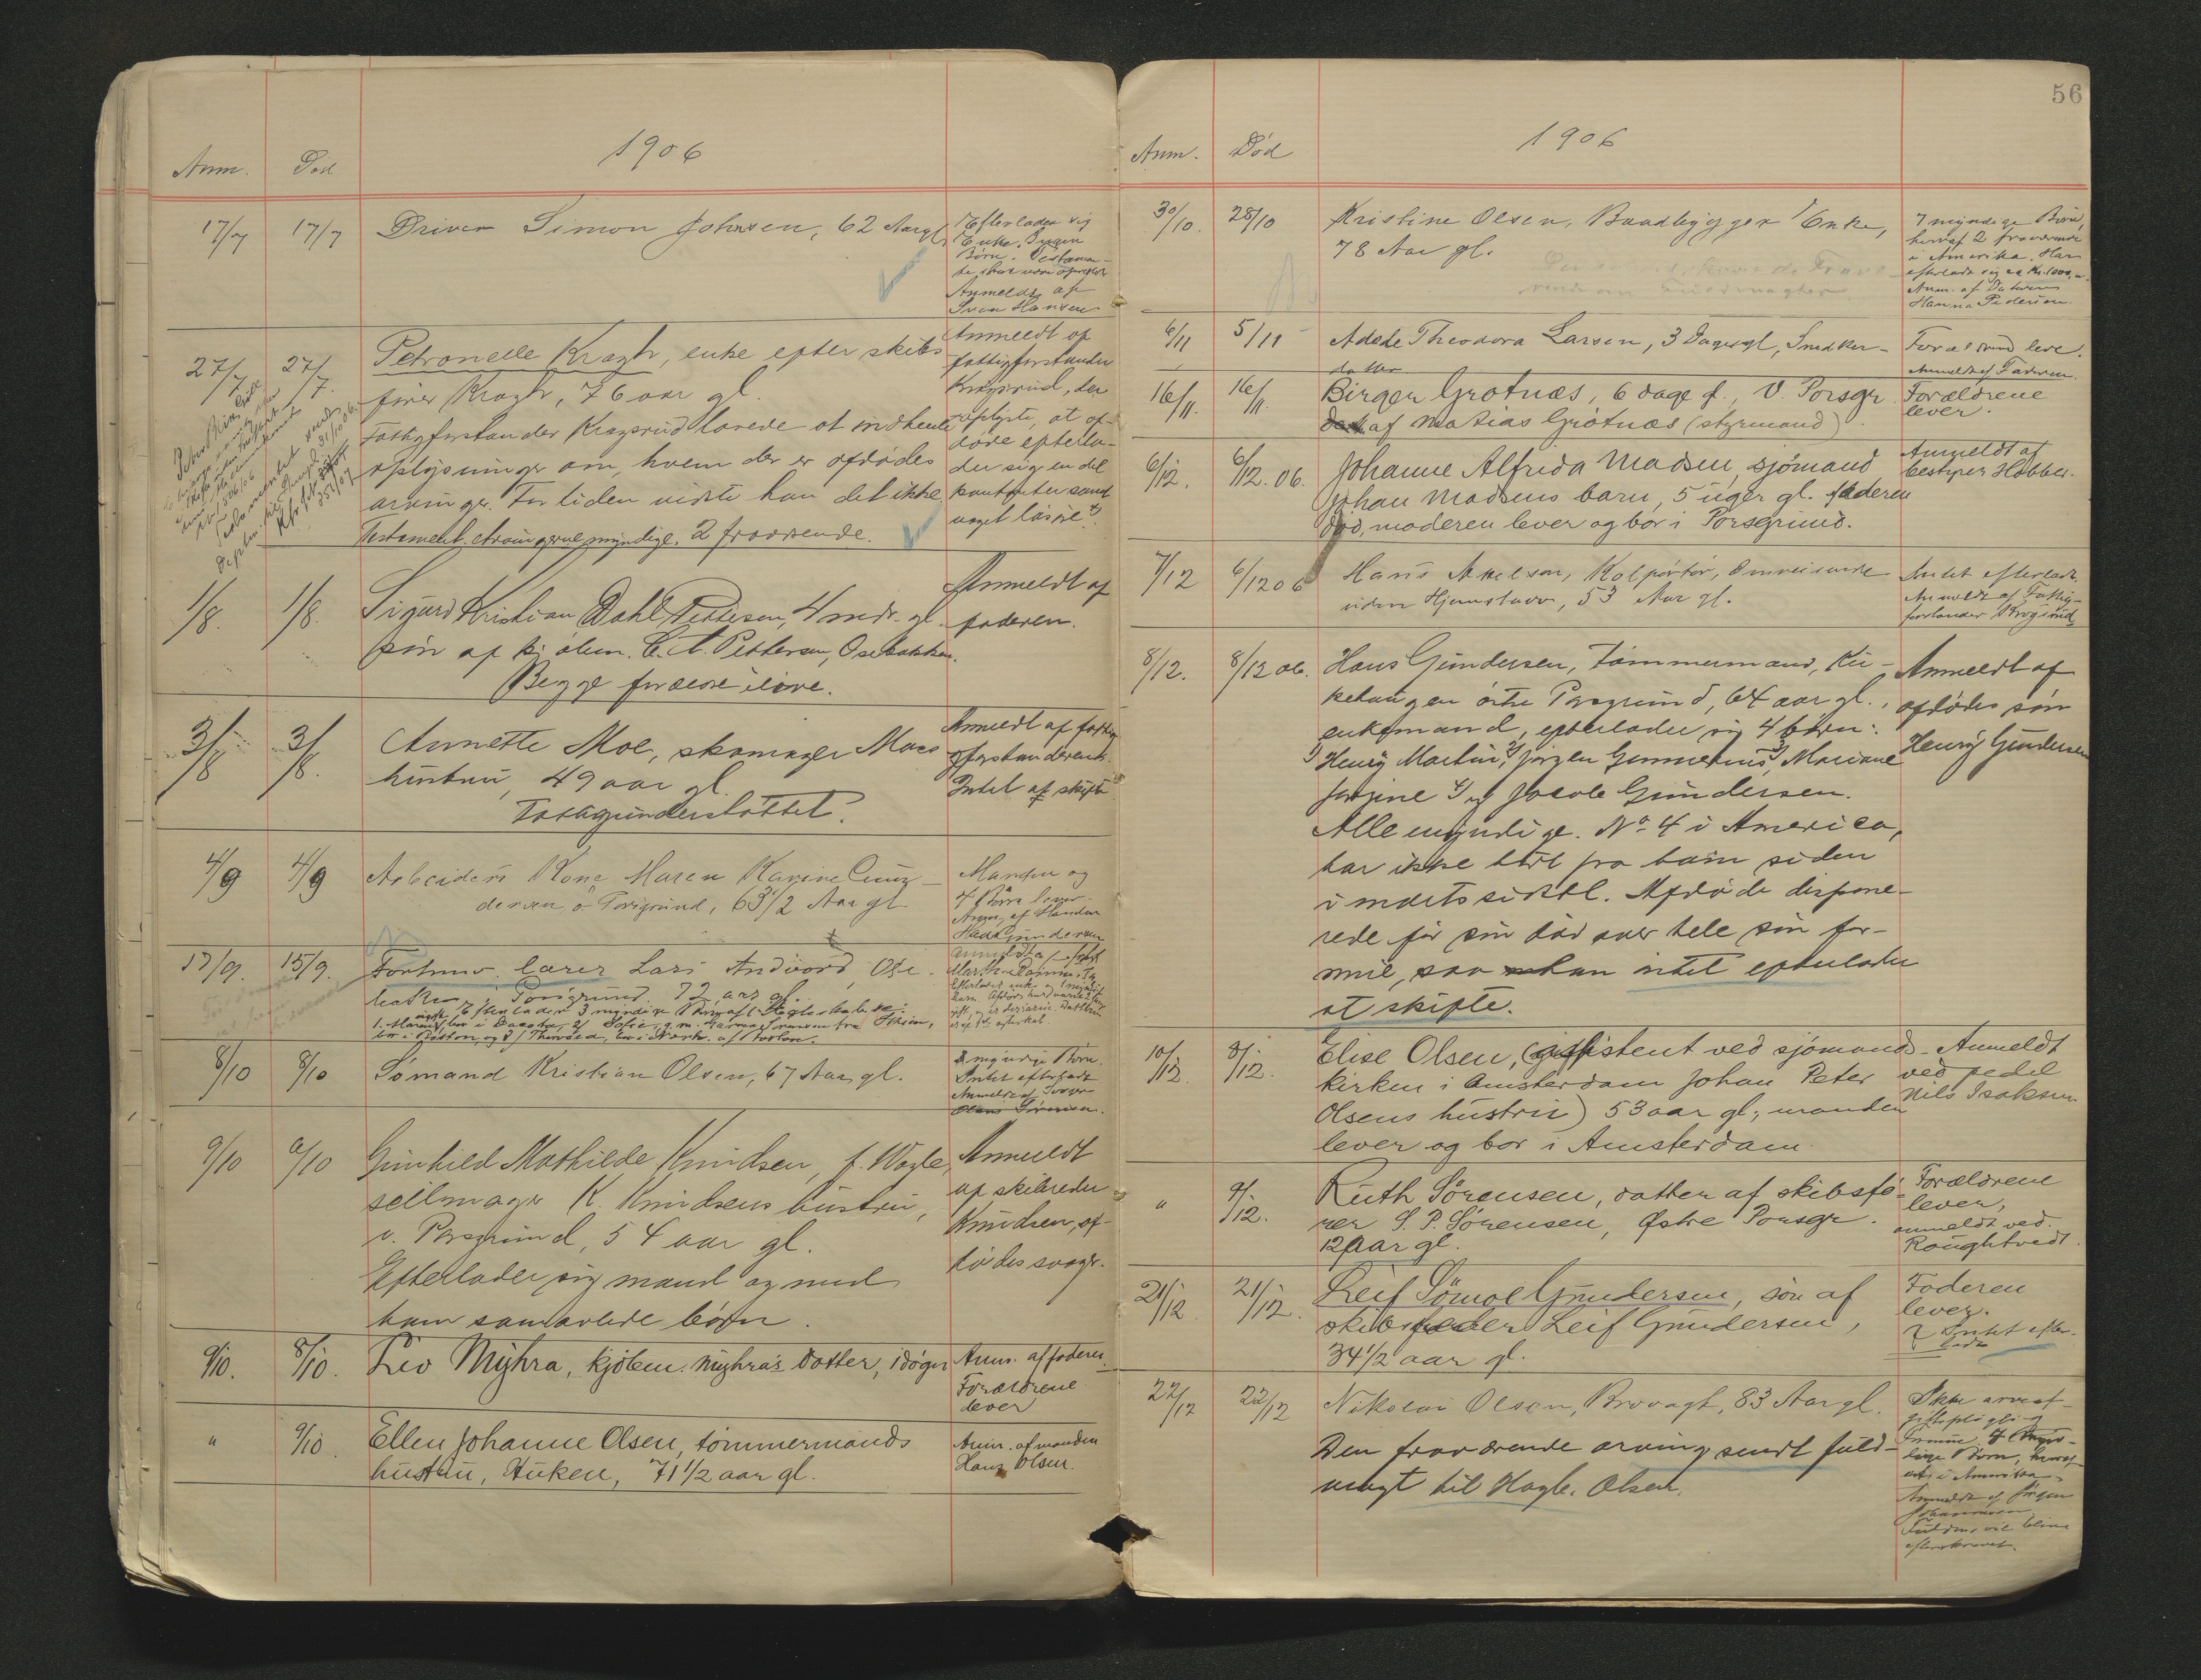 1906
Anm. Død
17/7 17/7 Driver Simon Johnsen, 62 Aar gl.
Efterlader sig
Enke. Ingen
Børn. Testamen-
te skal være oprettet
Anmeldt af
Sven Hansen
27/7 27/7. Petronelle Kragh, enke efter skibs
fører Kragh, 76 aar gl.
Fattigforstander Krogsrud lovede at indhente
oplysninger om, hvem der er afdødes
arvinger. For tiden vidste han det ikke
Testament. Arvingerne myndige. 2 fraværende.
Anmeldt af
fattigforstander
Krogsrud, der
oplyste, at af-
døde efterla-
der sig en del
panteter samt
noget løsøre
1/8. 1/8. Sigurd Kristian Dahl Pettersen, 4 mdr. gl.
søn af kjøbm. C. A. Pettersen, Osebakken.
Begge forældre ilive.
Anmeldt af
faderen.
3/8 3/8. Annette Moe, skomager Moes
hustru, 49 aar gl.
Fattigunderstøttet.
Anmeldt af fattig
forstanderen.
Intet at skifte
4/9 4/9 Arbeiders Kone Maren Karine Gun-
dersen, ø. Porsgrund, 63 1/2 Aar gl.
Manden og
4 Børn lever
Anm. af Manden
Hans Gundersen
17/9. 15/9. Forhenv. lærer Lars Andvord, Ose-
bakken, Porsgrund 72 aar gl.
Efterlader 3 myndige Børn af 1. Ægteskab
bor i Boston, og 3/
8/10 8/10 Sømand Kristian Olsen, 67 Aar gl.
myndige Børn.
Intet efterladt
Anmeldt af
9/10 9/10 Gunhild Mathilde Knudsen, f. Wagle,
seilmager K. Knudsens hustru,
v. Porsgrund, 54 aar gl.
Efterlader sig mand og med
ham samavlede børn.
Anmeldt
af skibsreder
Knudsen, af-
dødes svoger.
9/10. 8/10. Liv Myhra, kjøbm. Myhra's datter, 1 døgn
Anm. af faderen.
Forældrene
lever
" 9/10 Ellen Johanne Olsen, tømmermands
hustru, Huken, 71 1/2 aar gl.
Anm. af manden
Hans Olsen.
56
1906
Anm. Død
30/10. 28/10 Kristine Olsen, Baadbygger Enke,
78 Aar gl.
7 myndige Børn,
heraf 2 fraværende
i Amerika. Har
efterladt sig ca Kr. 1000,
Anm. af Datteren
Hanna Pedersen.
6/11 5/11 Adele Theodora Larsen, 3 Dage gl., Snedker-
datter
Forældrene leve.
Anmeldt af Faderen.
16/11. 16/11. Birger Grotnæs, 6 dage g., V. Porsgr.
af Matias Grotnæs (styrmand)
Forældrene
lever.
6/12. 6/12.06. Johanne Alfrida Madsen, sjømand
Johan Madsens barn, 5 uger gl. faderen
død, moderen lever og bor i Porsgrund.
Anmeldt af
bestyrer
7/12 6/12 06 Hans Akelsen, Kolportør, Omreisende
uden Hjemstavn, 53 Aar gl.
Intet efterladt.
Anmeldt af Fattig-
forstander Krogsrud
8/12. 8/12 06. Hans Gundersen, Tømmermand, Kir-
kehaugen østre Porsgrund, 64 aar gl.,
enkemand, efterlader sig 4 børn:
1) Henry Martin, 2) Jørgen Gunnerius, 3) Mariane
Jørgine 4) og Jacob Gundersen.
Alle myndige. No 4 i America,
har ikke hørt fra ham siden
i martssidstl. Afdøde dispone-
rede før sin død over hele sin for-
mue, saa han intet efterlader
at skifte.
Anmeldt af
afdødes søn
Henry Gundersen
10/12. 8/12. Elise Olsen, (assistent ved sjømands-
kirken i Amsterdam Johan Peter
Olsens hustru) 53 aar gl.; manden
lever og bor i Amsterdam.
Anmeldt
ved pedel
Nils Isaksen
" 9/12. Ruth Sørensen, datter af skibsfø-
rer S. P. Sørensen, Østre Porsgr.
12 Aar gl.
Forældrene
lever,
anmeldt ved
Roughtvedt.
21/12 21/12. Leif Sømoe Gundersen, søn af
skibsreder Leif Gundersen,
34 1/2 aar gl.
Foderen
lever.
Intet efter-
ladt
22/12 22/12 Nikolai Olsen, Brovagt, 83 Aar gl.
Den fraværende arving sendt fuld-
magt til Hagb. Olsen.
Ikke arveaf-
giftspligtig
Formue. 4 Myn-
dige Børn, heraf
et i Amerika
Anmeldt af Jørgen
Johannesen
Fuldm. vil blive
efterskrevet.